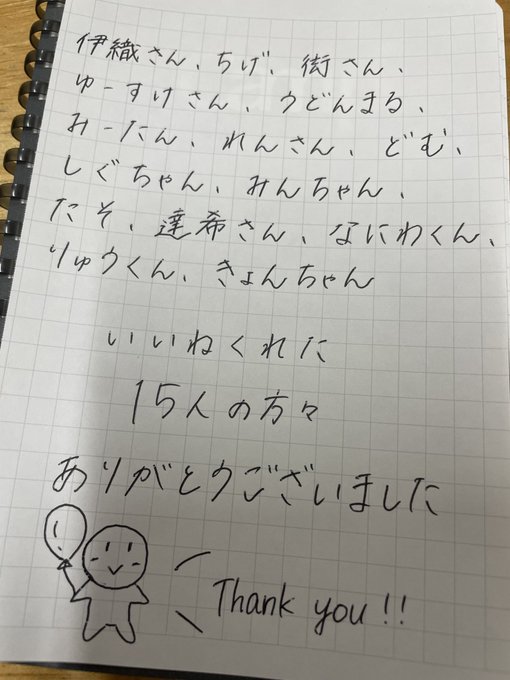 伊織さん、ちげ、街さん、
ゆーすけさん、うどんまる、
みーたん、れんさん、どむ、
しぐちゃん、みんちゃん、
たそ、達希さん、なにわくん、
りゅうくん、きょんちゃん
いいねくれた
15人の方々
ありがとうございました
Thank you!!